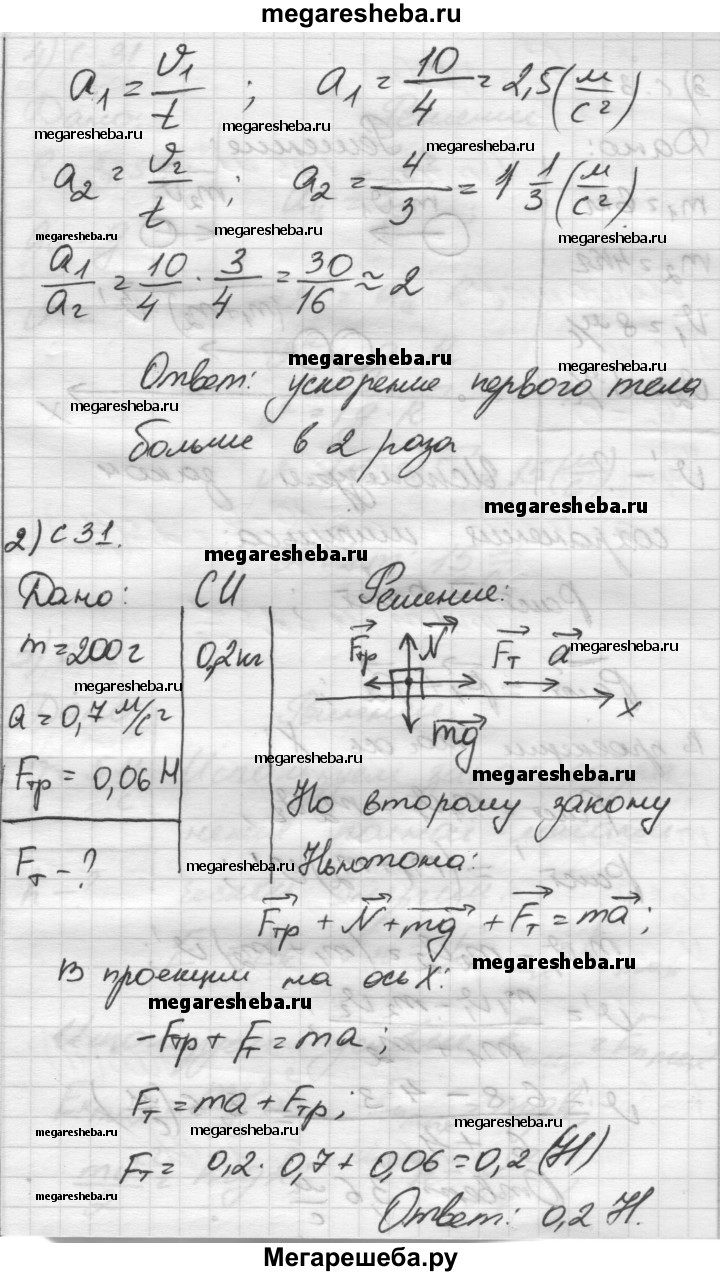 megaresheba.ru
a₁ = v₁/t ; a₁ = 10/4 = 2,5 (м/с²)
megaresheba.ru megaresheba.ru megaresheba.ru
a₂ = v₂/t ; a₂ = 4/3 = 1 1/3 (м/с²)
megaresheba.ru megaresheba.ru
a₁/a₂ = 10/4 · 3/4 = 30/16 ≈ 2
megaresheba.ru megaresheba.ru
Ответ: ускорение первого тела
megaresheba.ru
больше в 2 раза
megaresheba.ru
2) С 31.
megaresheba.ru
Дано: СИ Решение:
m = 200 г 0,2 кг F→тр N→ F→т a→
megaresheba.ru megaresheba.ru
a = 0,7 м/с² x
mg→
Fтр = 0,06 Н megaresheba.ru
По второму закону
Fт - ? megaresheba.ru Ньютона:
F→тр + N→ + mg→ + F→т = ma→;
megaresheba.ru
В проекции на ось X:
megaresheba.ru
-Fтр + Fт = ma;
Fт = ma + Fтр;
megaresheba.ru megaresheba.ru megaresheba.ru
Fт = 0,2 · 0,7 + 0,06 = 0,2 (Н)
megaresheba.ru
Ответ: 0,2 Н.
Мегарешеба.ру